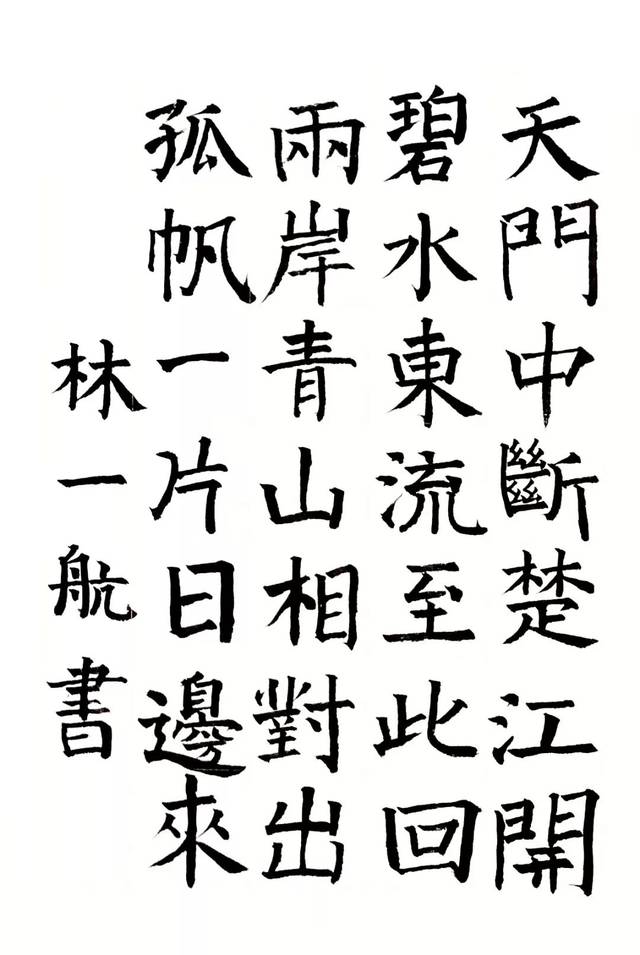 天門中斷楚江開
碧水東流至此回
兩岸青山相對出
孤帆一片日邊來
林一航書